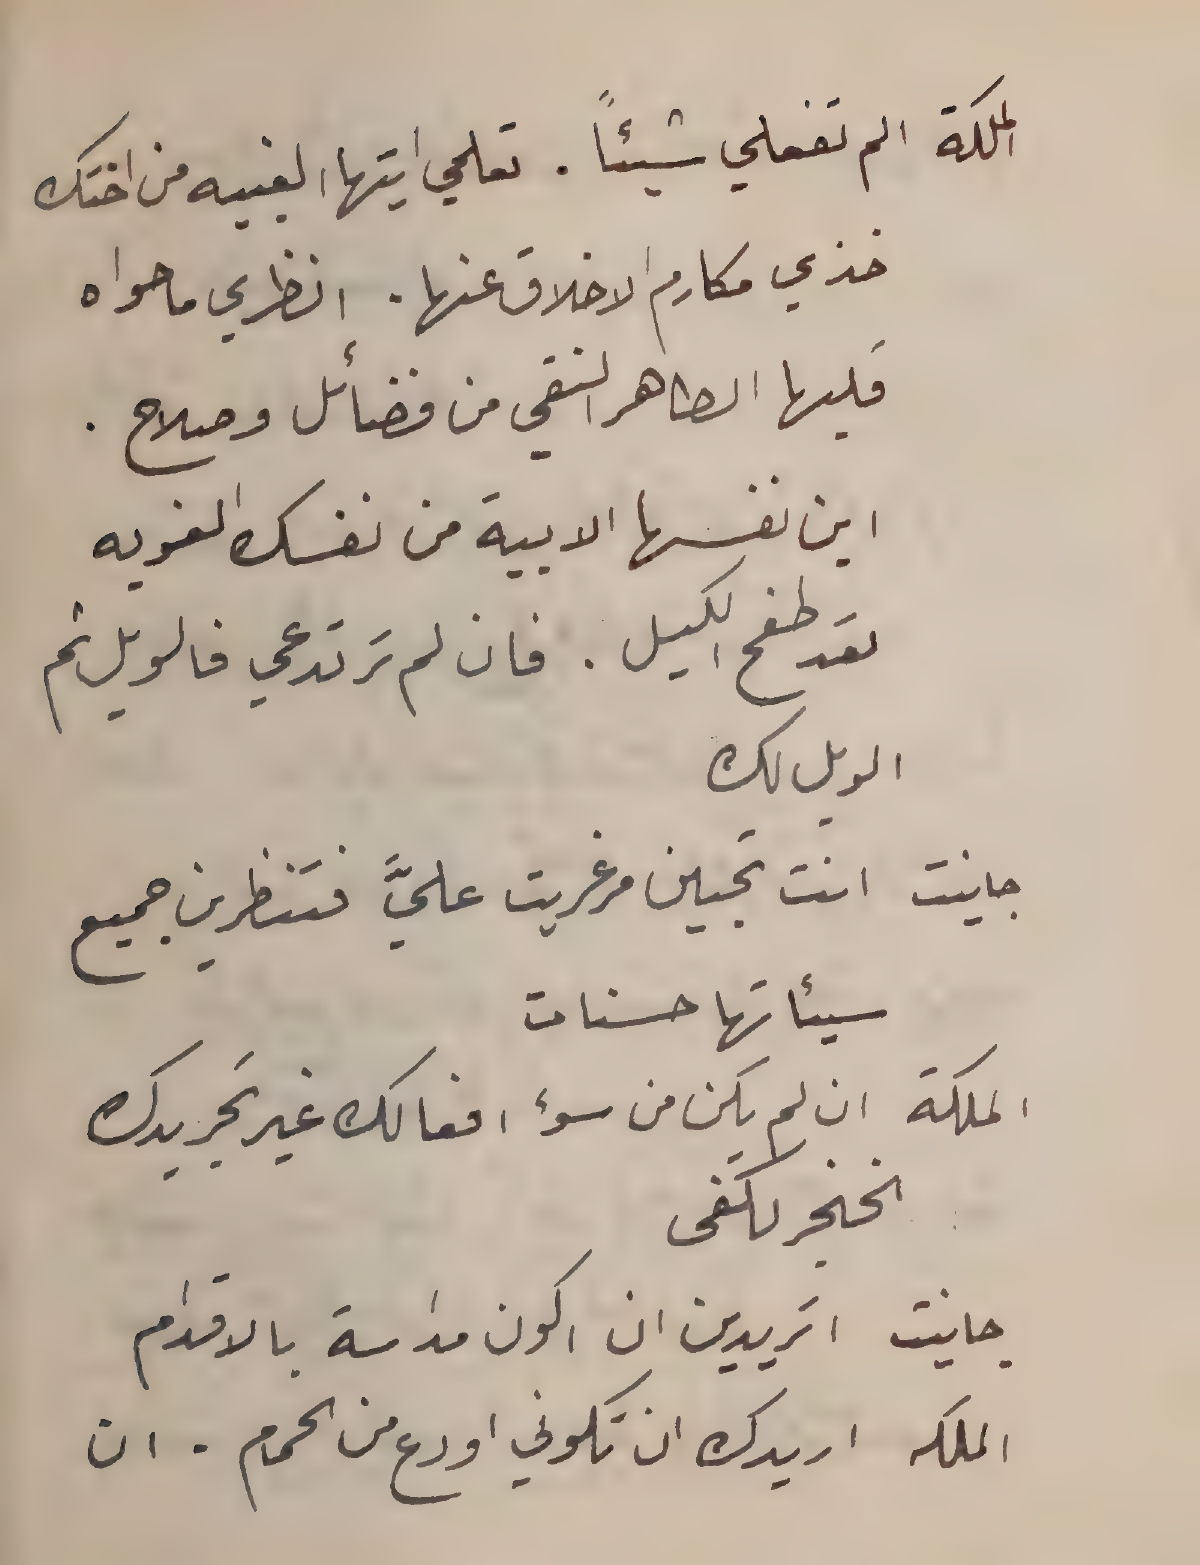 الملكة الم تفعلي شيئاً . تعلمي ايتها الغبيه من اختك
خذي مكارم الاخلاق عنها . انظري ما حواه
قلبها الطاهر النقي من فضائل وصلاح .
اين نفسها الابية من نفسك الغويه
لقد طفح الكيل . فان لم ترتدعي فالويل ثم
الويل لك
جانيت انت تجبلين مرغريت عليَّ فتنظرين جميع
سيئاتها حسنات
الملكة ان لم يكن من سوء افعالك غير تجريدك
الخنجر لكفى
جانيت اتريدين ان اكون مداسة بالاقدام
الملكه اريدك ان تكوني اودع من الحمام . ان